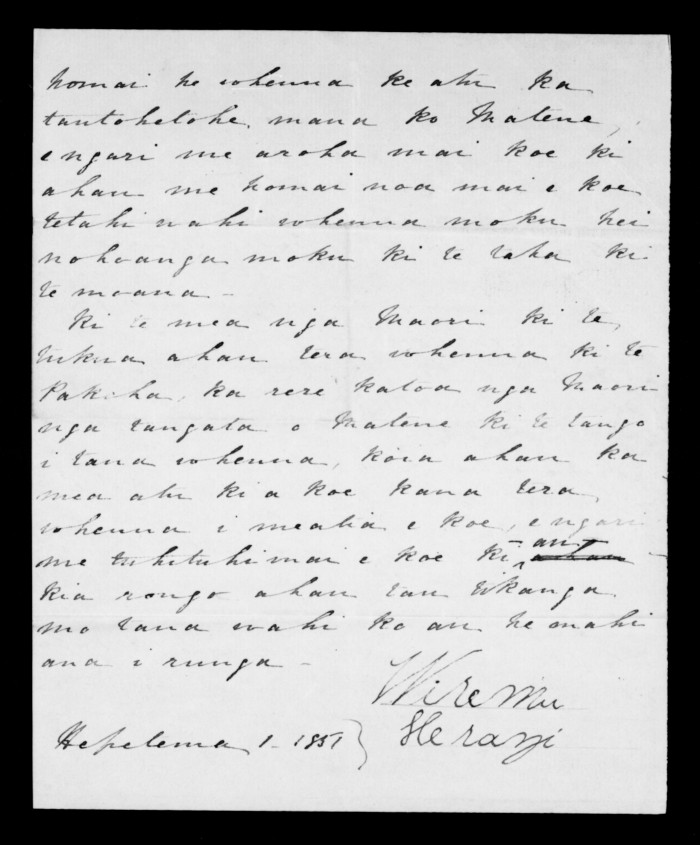 homai he whenua ke atu ka
tautohetohe, mana ko Matene,
engari me aroha mai koe ki
ahau me homai noa mai e koe
tetahi wahi whenua moku hei
nohoanga moku ki te taha ki
te moana -
Ki te mea nga Maori ki te,
tukua ahau tera whenua ki te
Pakeha, ka rere katoa nga Maori
nga tangata o Matene ki te tango
i tana whenua, koia ahau ka
mea atu ki a koe kana tera
whenua i meatia e koe, engari
me tuhituhi mai e koe ki au
kia rongo ahau tau tikanga
mo tana wahi ko au he mahi
ana i runga -
Wiremu
Hepetema 1 - 1851